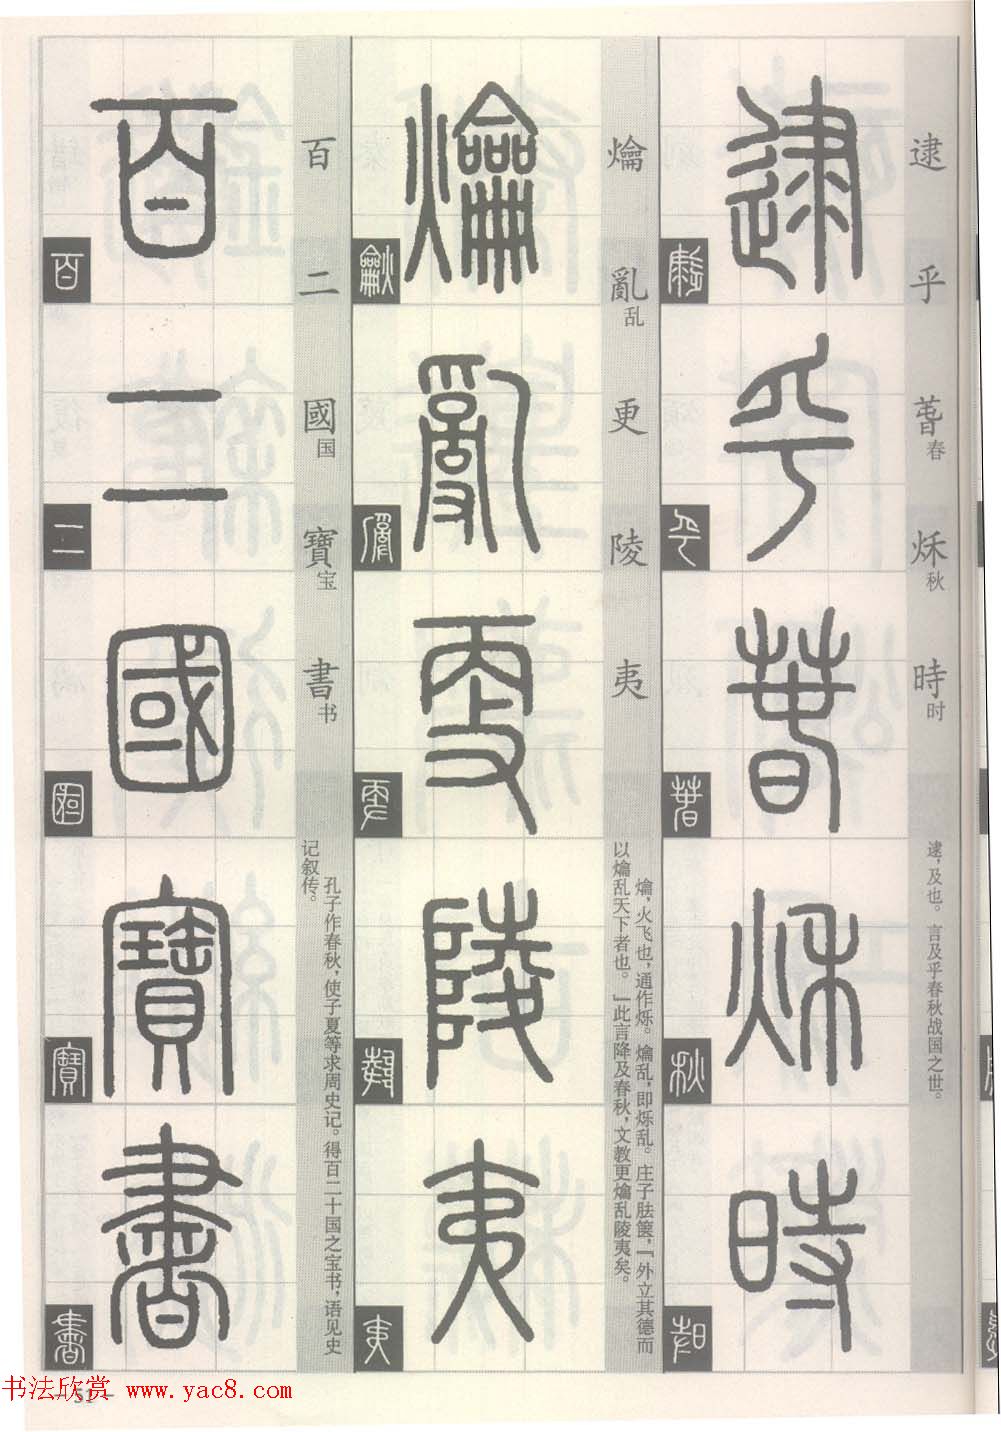 逮乎萅春秌秋時时
逮，及也。言及乎春秋战国之世。
逮
乎
萅
秌
時
爚亂乱更陵夷
爚，火飞也，通作烁。爚乱，即烁乱。庄子胠箧，「外立其德而
以爚乱天下者也。」此言降及春秋，文教更爚乱陵夷矣。
爚
亂
更
陵
夷
百二國国寶宝書书
孔子作春秋，使子夏等求周史记。得百二十国之宝书，语见史
记叙传。
百
二
國
寶
書
书法欣赏 www.yac8.com
51